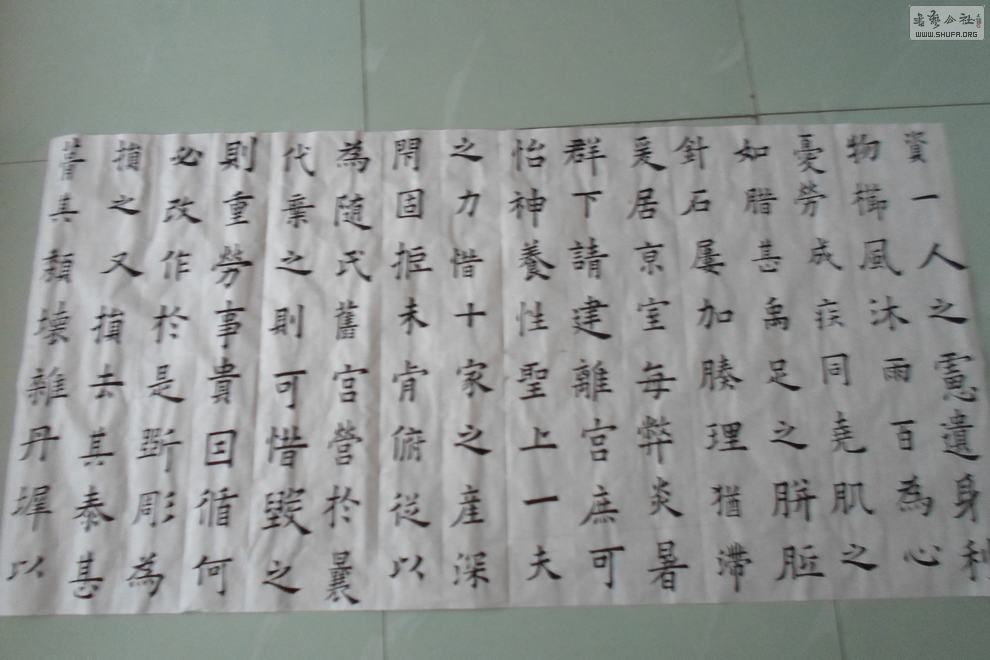 資一人之憲遺身利
物櫛風沐雨百為心
憂勞成疾同堯肌之
如腊甚禹足之胼胝
針石屡加腠理猶滯
爰居京室每弊炎暑
群下請建離宮庶可
怡神養性聖上一夫
之力惜十家之産深
閇固拒未肯俯從以
為随氏舊宮營於曩
代棄之則可惜毀之
則重勞事貴因循何
必改作於是斲彫為
損之又損去其泰甚
葺其頹壞雜丹墀以
書藝公社
WWW.SHUFA.ORG